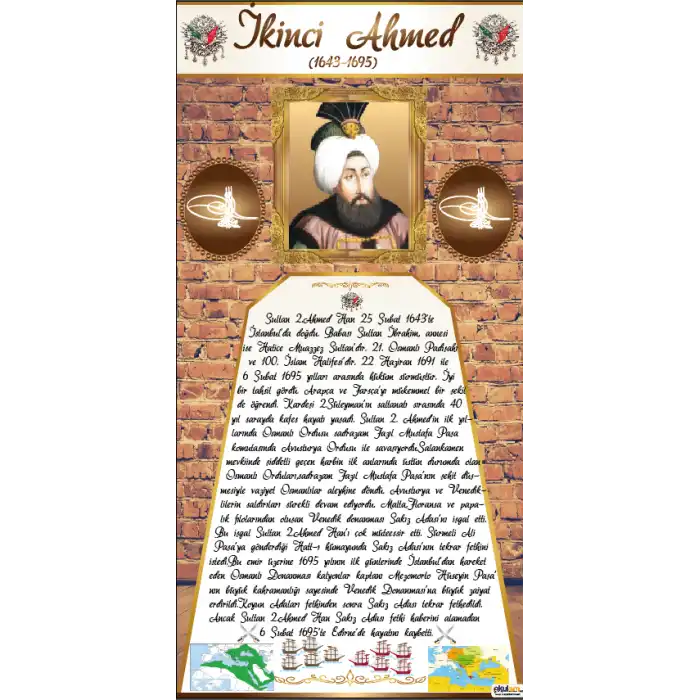 İkinci Ahmed
(1643-1695)
Sultan 2.Ahmed Han 25 Şubat 1643'te
İstanbul'da doğdu. Babası Sultan İbrahim, annesi
ise Hatice Muazzez Sultan'dır. 21. Osmanlı Padişahı
ve 100. İslam Halifesi'dir. 22 Haziran 1691 ile
6 Şubat 1695 yılları arasında hüküm sürmüştür. İyi
bir tahsil gördü. Arapça ve Farsça'yı mükemmel bir şekil
de öğrendi. Kardeşi 2.Süleyman'ın saltanatı sırasında 40
yıl sarayda kafes hayatı yaşadı. Sultan 2. Ahmed'in ilk yıl-
larında Osmanlı Ordusu sadrazam Fazıl Mustafa Paşa
komutasında Avusturya Ordusu ile savaşıyordu.Salankamen
mevkiinde şiddetli geçen harbin ilk anlarında üstün durumda olan
Osmanlı Orduları,sadrazam Fazıl Mustafa Paşa'nın şehit düş-
mesiyle vaziyet Osmanlılar aleyhine döndü. Avusturya ve Venedik-
lilerin saldırıları sürekli devam ediyordu. Malta,Floransa ve papa-
lık filolarından oluşan Venedik donanması Sakız Adası'nı işgal etti.
Bu işgal Sultan 2.Ahmed Han'ı çok müteessir etti. Sürmeli Ali
Paşa'ya gönderdiği Hatt-ı hümayunda Sakız Adası'nın tekrar fethini
istedi.Bu emir üzerine 1695 yılının ilk günlerinde İstanbul'dan hareket
eden Osmanlı Donanması kalyonlar kaptanı Mezomorto Hüseyin Paşa'
nın büyük kahramanlığı sayesinde Venedik Donanması'na büyük zaiyat
erdirildi.Koyun Adaları fethinden sonra Sakız Adası tekrar fethedildi.
Ancak Sultan 2.Ahmed Han Sakız Adası fethi haberini alamadan
6 Şubat 1695'te Edirne'de hayatını kaybetti.